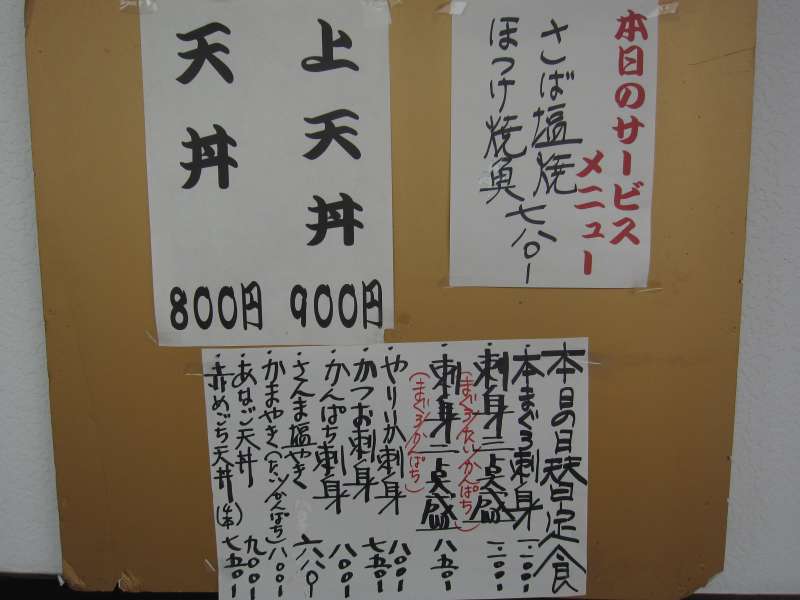 本日のサービス
メニュー
さば塩焼
ほっけ焼魚
七八〇ー
上天丼 900円
天丼 800円
本日の日替定食
・本まぐろ刺身 一.〇〇〇ー
・刺身三点盛 一.〇〇〇ー
(まぐろ/たい/かんぱち)
・刺身二点盛 八五〇ー
(まぐろ/かんぱち)
・やりいか刺身 八〇〇ー
・かつお刺身 七五〇ー
・かんぱち刺身 八〇〇ー
・さんま塩やき 六八〇ー
・かまやき(たい/かんぱち) 八〇〇ー
・あなご天丼 九〇〇ー
・赤めごち天丼(4本) 七五〇ー